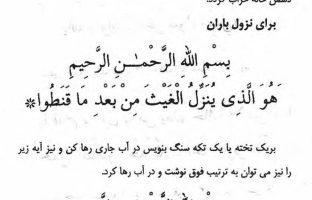 دشمن خانه خراب گردد.
برای نزول باران
بِسْمِ اللهِ الرَّحْمٰنِ الرَّحِيمِ
هَُوَ الَّذِي يُنَزِّلُ الْغَيْثَ مِنْ بَعْدِ مَا قَنَطُوا*
بریک تخته یا یک تکه سنگ بنویس در آب جاری رها کن و نیز آیه زیر
را نیز می توان به ترتیب فوق نوشت و در آب رها کرد.